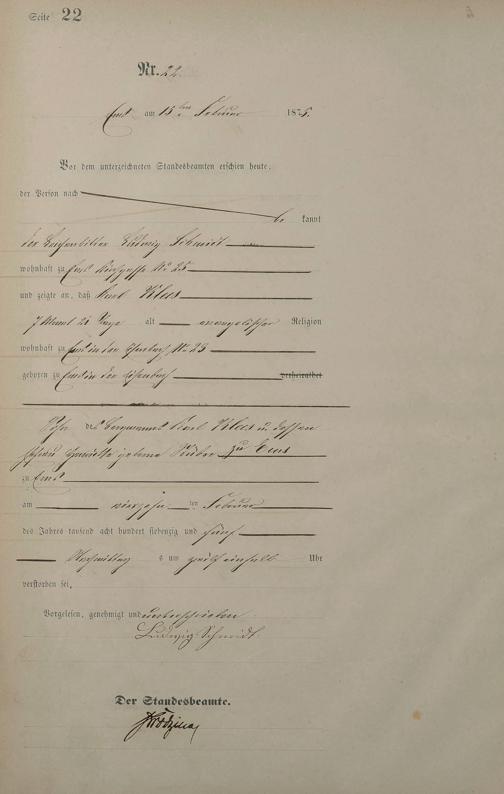 Seite 22
Nr. 22.
Ems am 15ten Februar 1875.
Vor dem unterzeichneten Standesbeamten erschien heute,
der Person nach
be kannt
der Ludwig Schmidt
wohnhaft zu Ems No 25
und zeigte an, daß Karl Klas
7 Monat 21 Tage alt evangelischer Religion
wohnhaft zu Ems in der No 29
geboren zu Ems in der verheirathet
Sohn des Bergmanns Karl Klas u. dessen
Ehefrau geborene zu Ems
zu Ems
am vierzehn ten Februar
des Jahres tausend acht hundert siebenzig und fünf
Nachmittag s um Uhr
verstorben sei.
Vorgelesen, genehmigt und unterschrieben
Ludwig Schmidt
Der Standesbeamte.